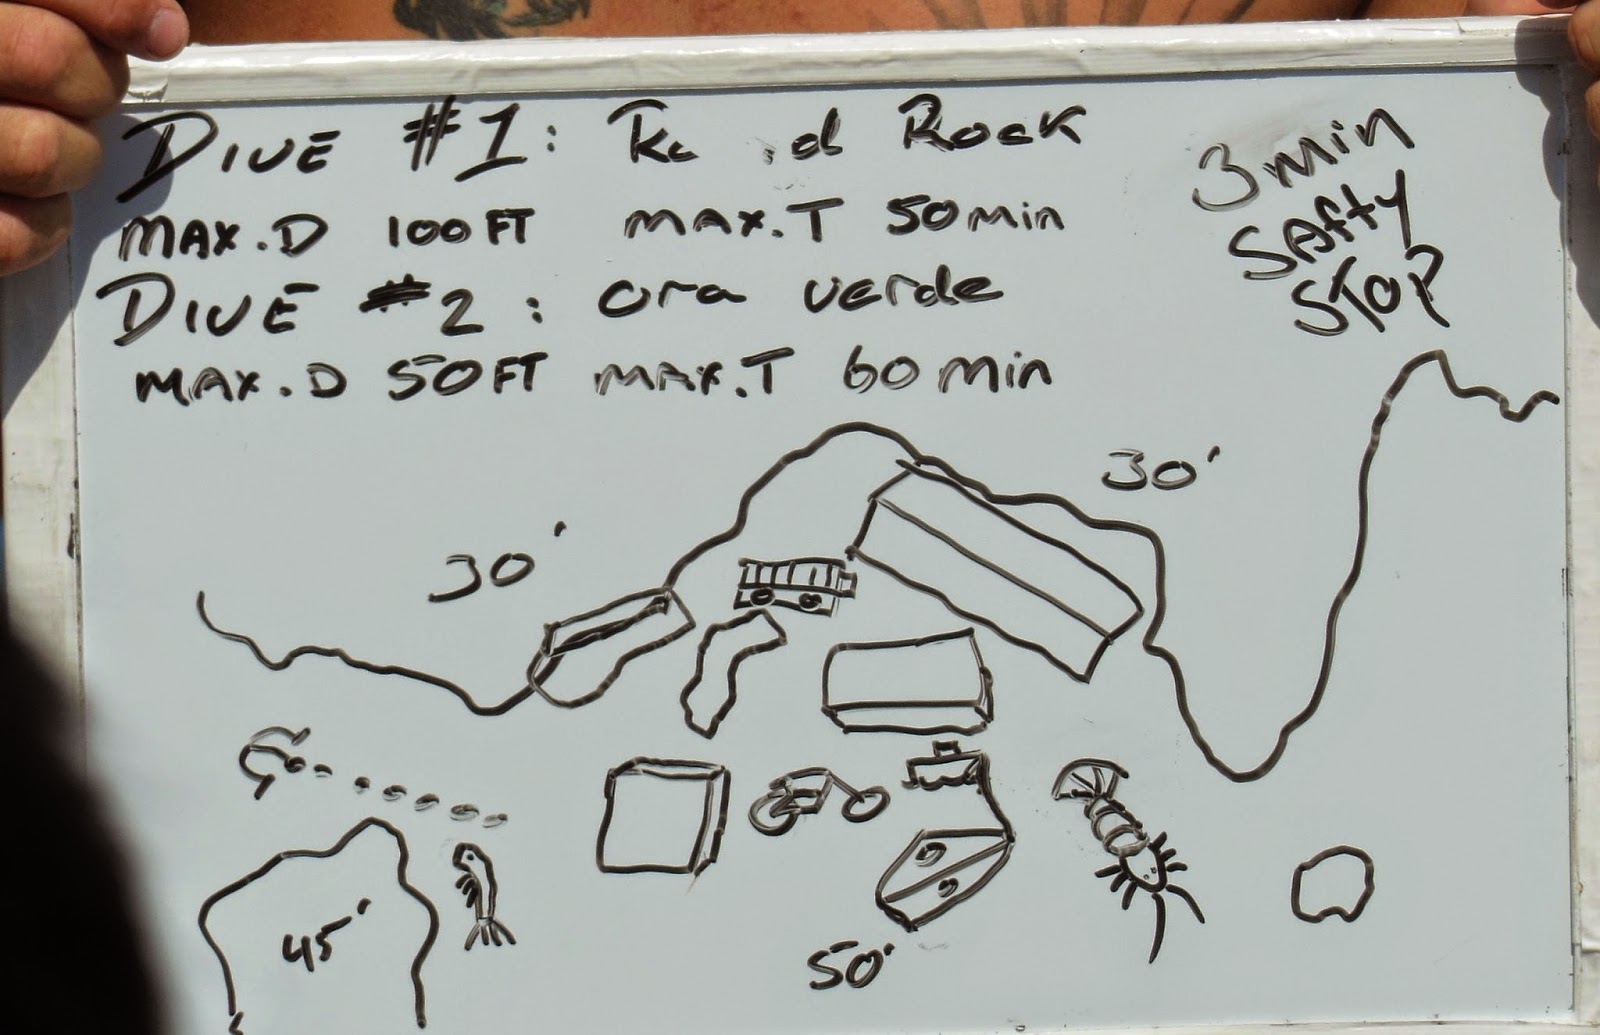 DIVE #1: Rock
MAX.D 100FT MAX.T 50min
DIVE #2: ora verde
MAX.D 50FT MAX.T 60min
3min
SAfty
STOP
30'
30'
45'
50'